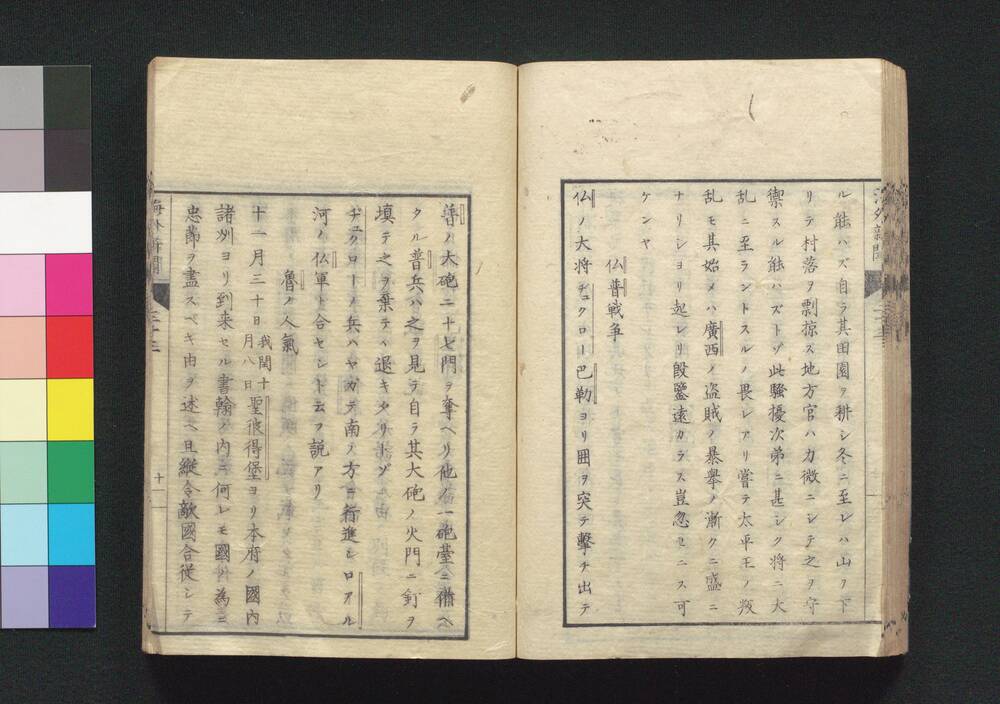 ル能ハズ自ラ其田園ヲ耕シ冬ニ至レハ山ヲ下
リテ村落ヲ剽掠ス地方官ハカ微ニシテ之ヲ守
禦スル能ハズトゾ此騷擾次第ニ甚シク将ニ大
乱ニ至ラントスルノ畏レアリ嘗テ太平王ノ叛
乱モ其始メハ廣西ノ盗賊ノ暴擧ノ漸クニ盛ニ
ナリシヨリ起レリ殷鑒遠カラス豈忽セニス可
ケンヤ
仏普戦争
仏ノ大将ヂュクロー巴勒ヨリ囲ヲ突テ擊チ出テ
普ノ大砲二十七門ヲ奪ヘリ他ノ一砲臺ニ備ヘ
タル普兵ハ之ヲ見テ自ラ其大砲ノ火門ニ釘ヲ
填テ之ヲ棄テヽ退キタリトゾ
ヂュクローノ兵ハヤガテ南ノ方ニ行進シロアル
河ノ仏軍ト合セントスルト云フ説アリ
魯ノ人氣
十一月三十日我閏十月八日聖彼得堡ヨリ本府ノ國内
諸州ヨリ到来セル書翰ノ内ニ何レモ國ノ為ニ
忠節ヲ盡スベキ由ヲ述ヘ且縦令敵國合従シテ
海外新聞
十一